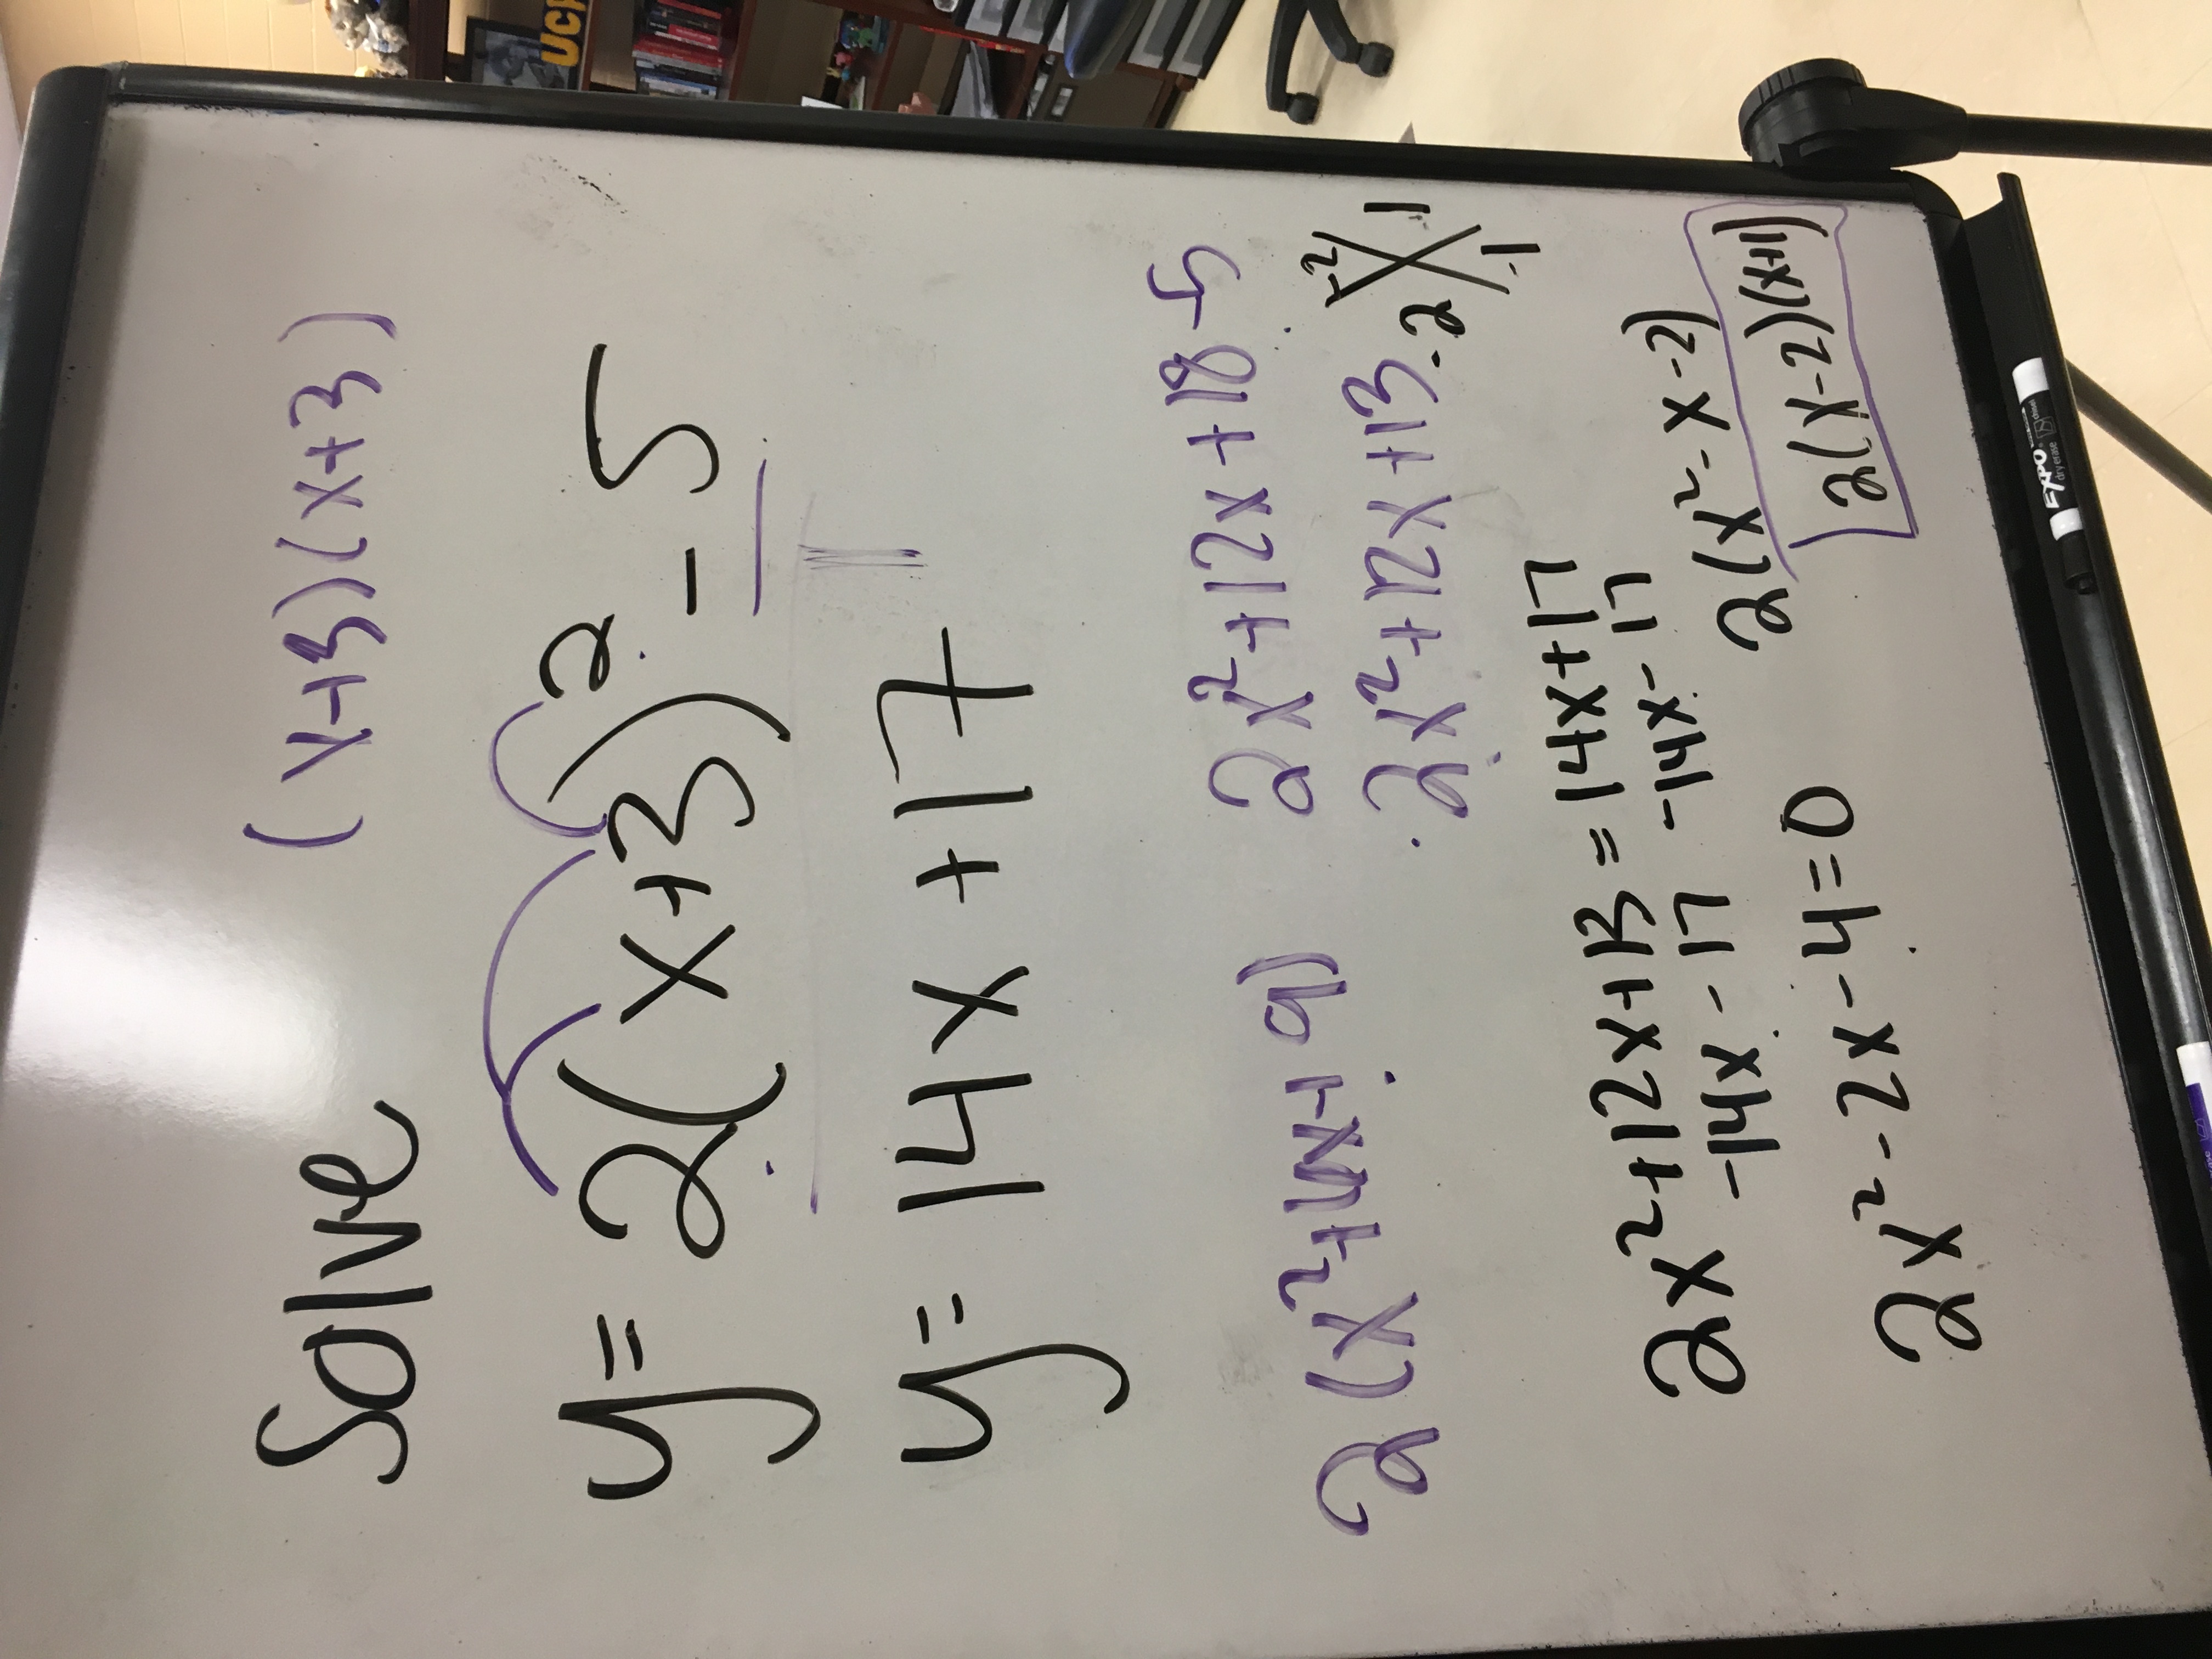 Solve
(x+3)(x+3)
y= 2(x+3)² - 5
y= 14x +17
2(x²+6x+9)
2x²+12x+18-5
2x²+12x+13
-2
-2 1
-1
2x²+12x+13 = 14x+17
-14x - 17 -14x - 17
2x² - 2x - 4 = 0
2(x² - x - 2)
2(x-2)(x+1)
EXPO
dry erase
chisel